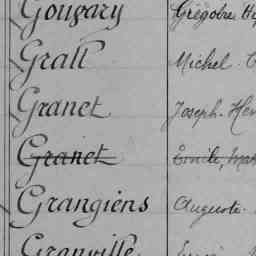 Gougary Grégoire
Grall Michel
Granet Joseph
Granet Emile
Grangiens Auguste
Granville